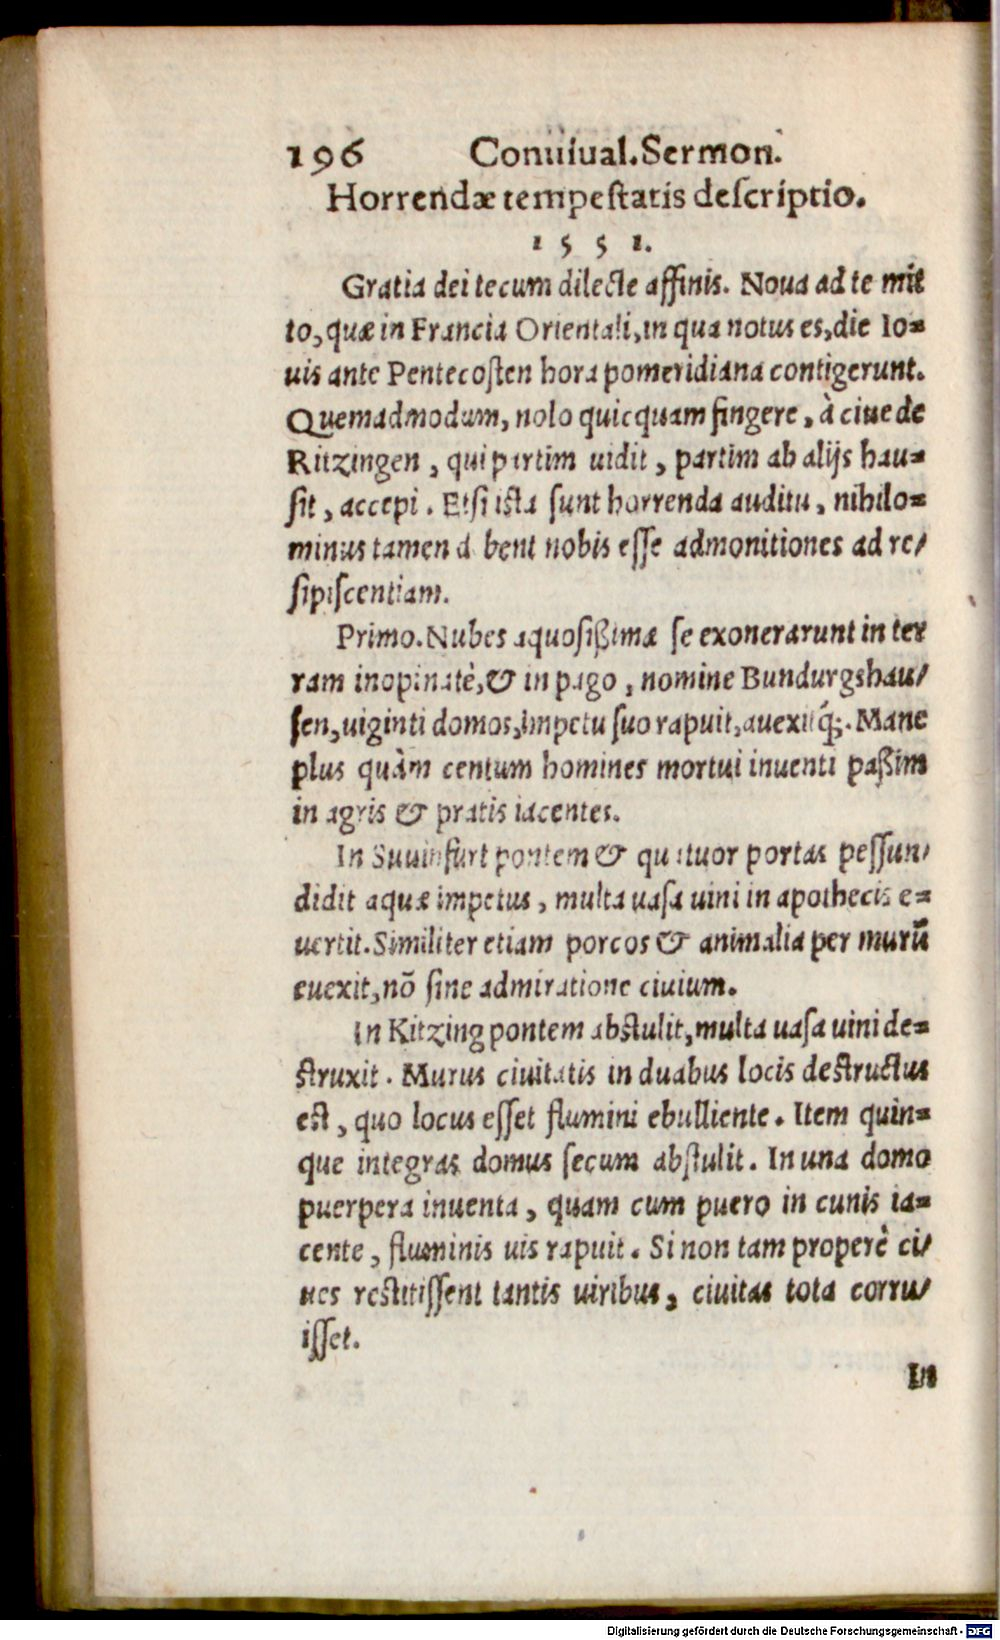 196 Conuiual.Sermon.
Horrendæ tempestatis descriptio.
1 5 5 1.
Gratia dei tecum dilecte affinis. Noua ad te mit
to, quæ in Francia Orientali, in qua notus es, die Io=
uis ante Pentecosten hora pomeridiana contigerunt.
Quemadmodum, nolo quicquam fingere, à ciue de
Ritzingen, qui partim uidit, partim ab alijs hau=
sit, accepi. Etsi ista sunt horrenda auditu, nihilo=
minus tamen d bent nobis esse admonitiones ad re/
sipiscentiam.
Primo. Nubes aquosißimæ se exonerarunt in ter
ram inopinatè, & in pago, nomine Bundurgshau/
sen, uiginti domos, impetu suo rapuit, auexitq́;. Mane
plus quàm centum homines mortui inuenti paßim
in agris & pratis iacentes.
In Suuinfurt pontem & quatuor portas pessun/
didit aquæ impetus, multa uasa uini in apothecis e=
uertit. Similiter etiam porcos & animalia per murū
euexit, nō sine admiratione ciuium.
In Kitzing pontem abstulit, multa uasa uini de=
struxit. Murus ciuitatis in duabus locis destructus
est, quo locus esset flumini ebulliente. Item quin=
que integras domus secum abstulit. In una domo
puerpera inuenta, quam cum puero in cunis ia=
cente, fluminis uis rapuit. Si non tam properè ci/
ues restitissent tantis uiribus, ciuitas tota corru/
isset.
In
Digitalisierung gefördert durch die Deutsche Forschungsgemeinschaft - DFG